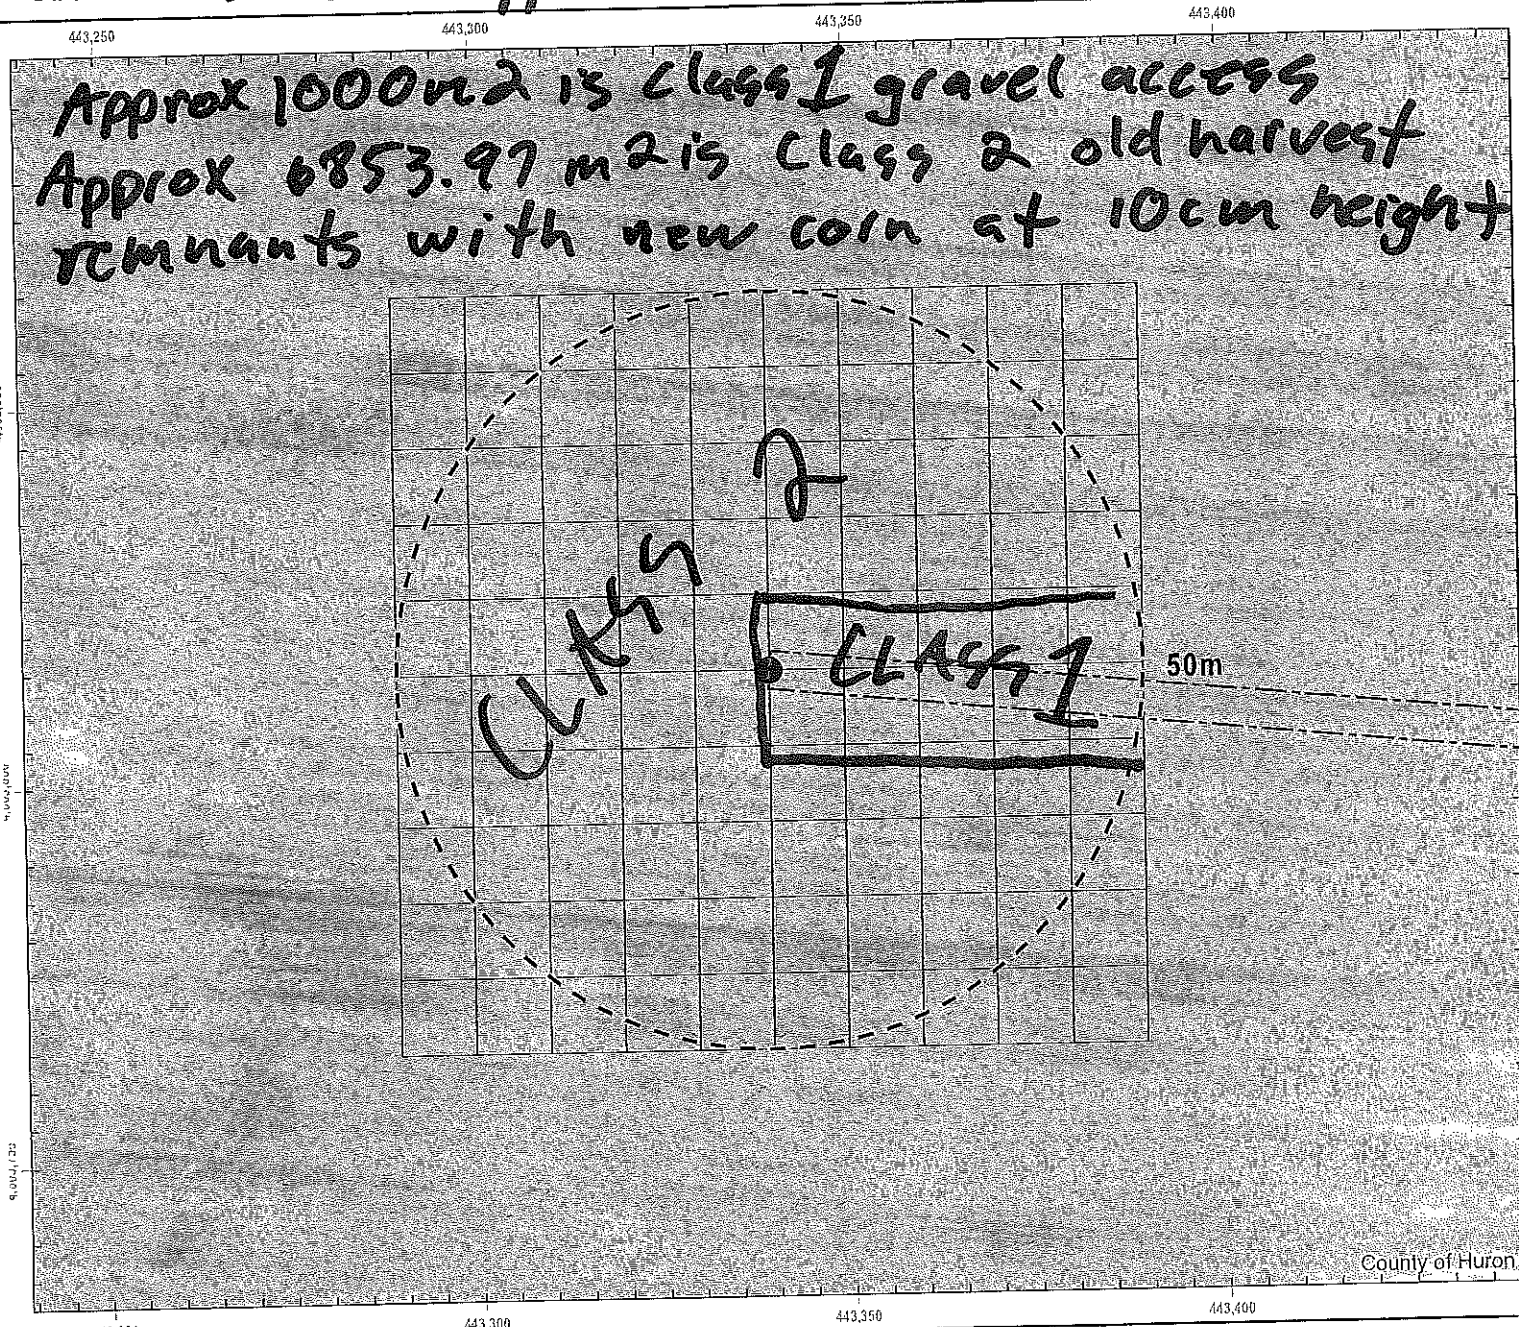 443,250 443,300 443,350 443,400
Approx 1000m2 is Class 1 gravel access
Approx 6853.97 m2 is Class 2 old harvest
remnants with new corn at 10cm height
Class 2
CLASS 1
50m
County of Huron
443,300 443,350 443,400